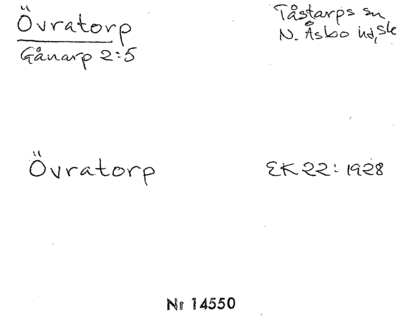 Övratorp
Gånarp 2:5
Tåstarps sn
N. Åsbo hd, Sk
Övratorp
EK 22: 1928
Nr 14550